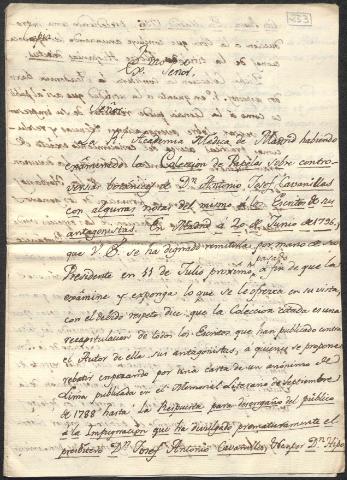 Exmo. Señor.
Señor.
La Rl. Academia Médica de Madrid habiendo
examinado la Colección de Papeles sobre contro-
versias botánicas de Dn. Antonio Josef Cavanillas
con algunas notas del mismo a los Escritos de sus
antagonistas. En Madrid á 20 de Junio de 1796,
que V. E. se ha dignado remitirla por mano de su
Presidente en 11 de Julio proximo pasado á fin de que la
examine y exponga lo que se le ofrezca en su vista,
con el debido respeto dice, que la Coleccion citada es una
recapitulacion de todos los Escritos que han publicado contra
el Autor de ella sus antagonistas, a quienes se propone
rebatir empezando por una carta de un anónimo de
Lima publicada en el Memorial Literario de Septiembre
de 1788 hasta la Respuesta para desengaño del público
a la Impugnacion que ha divulgado prematuramente el
presbitero Dn. Josef Antonio Cavanillas, &c por Dn. Hipo